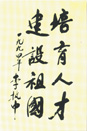 培育人才
建設祖國
一九九四年